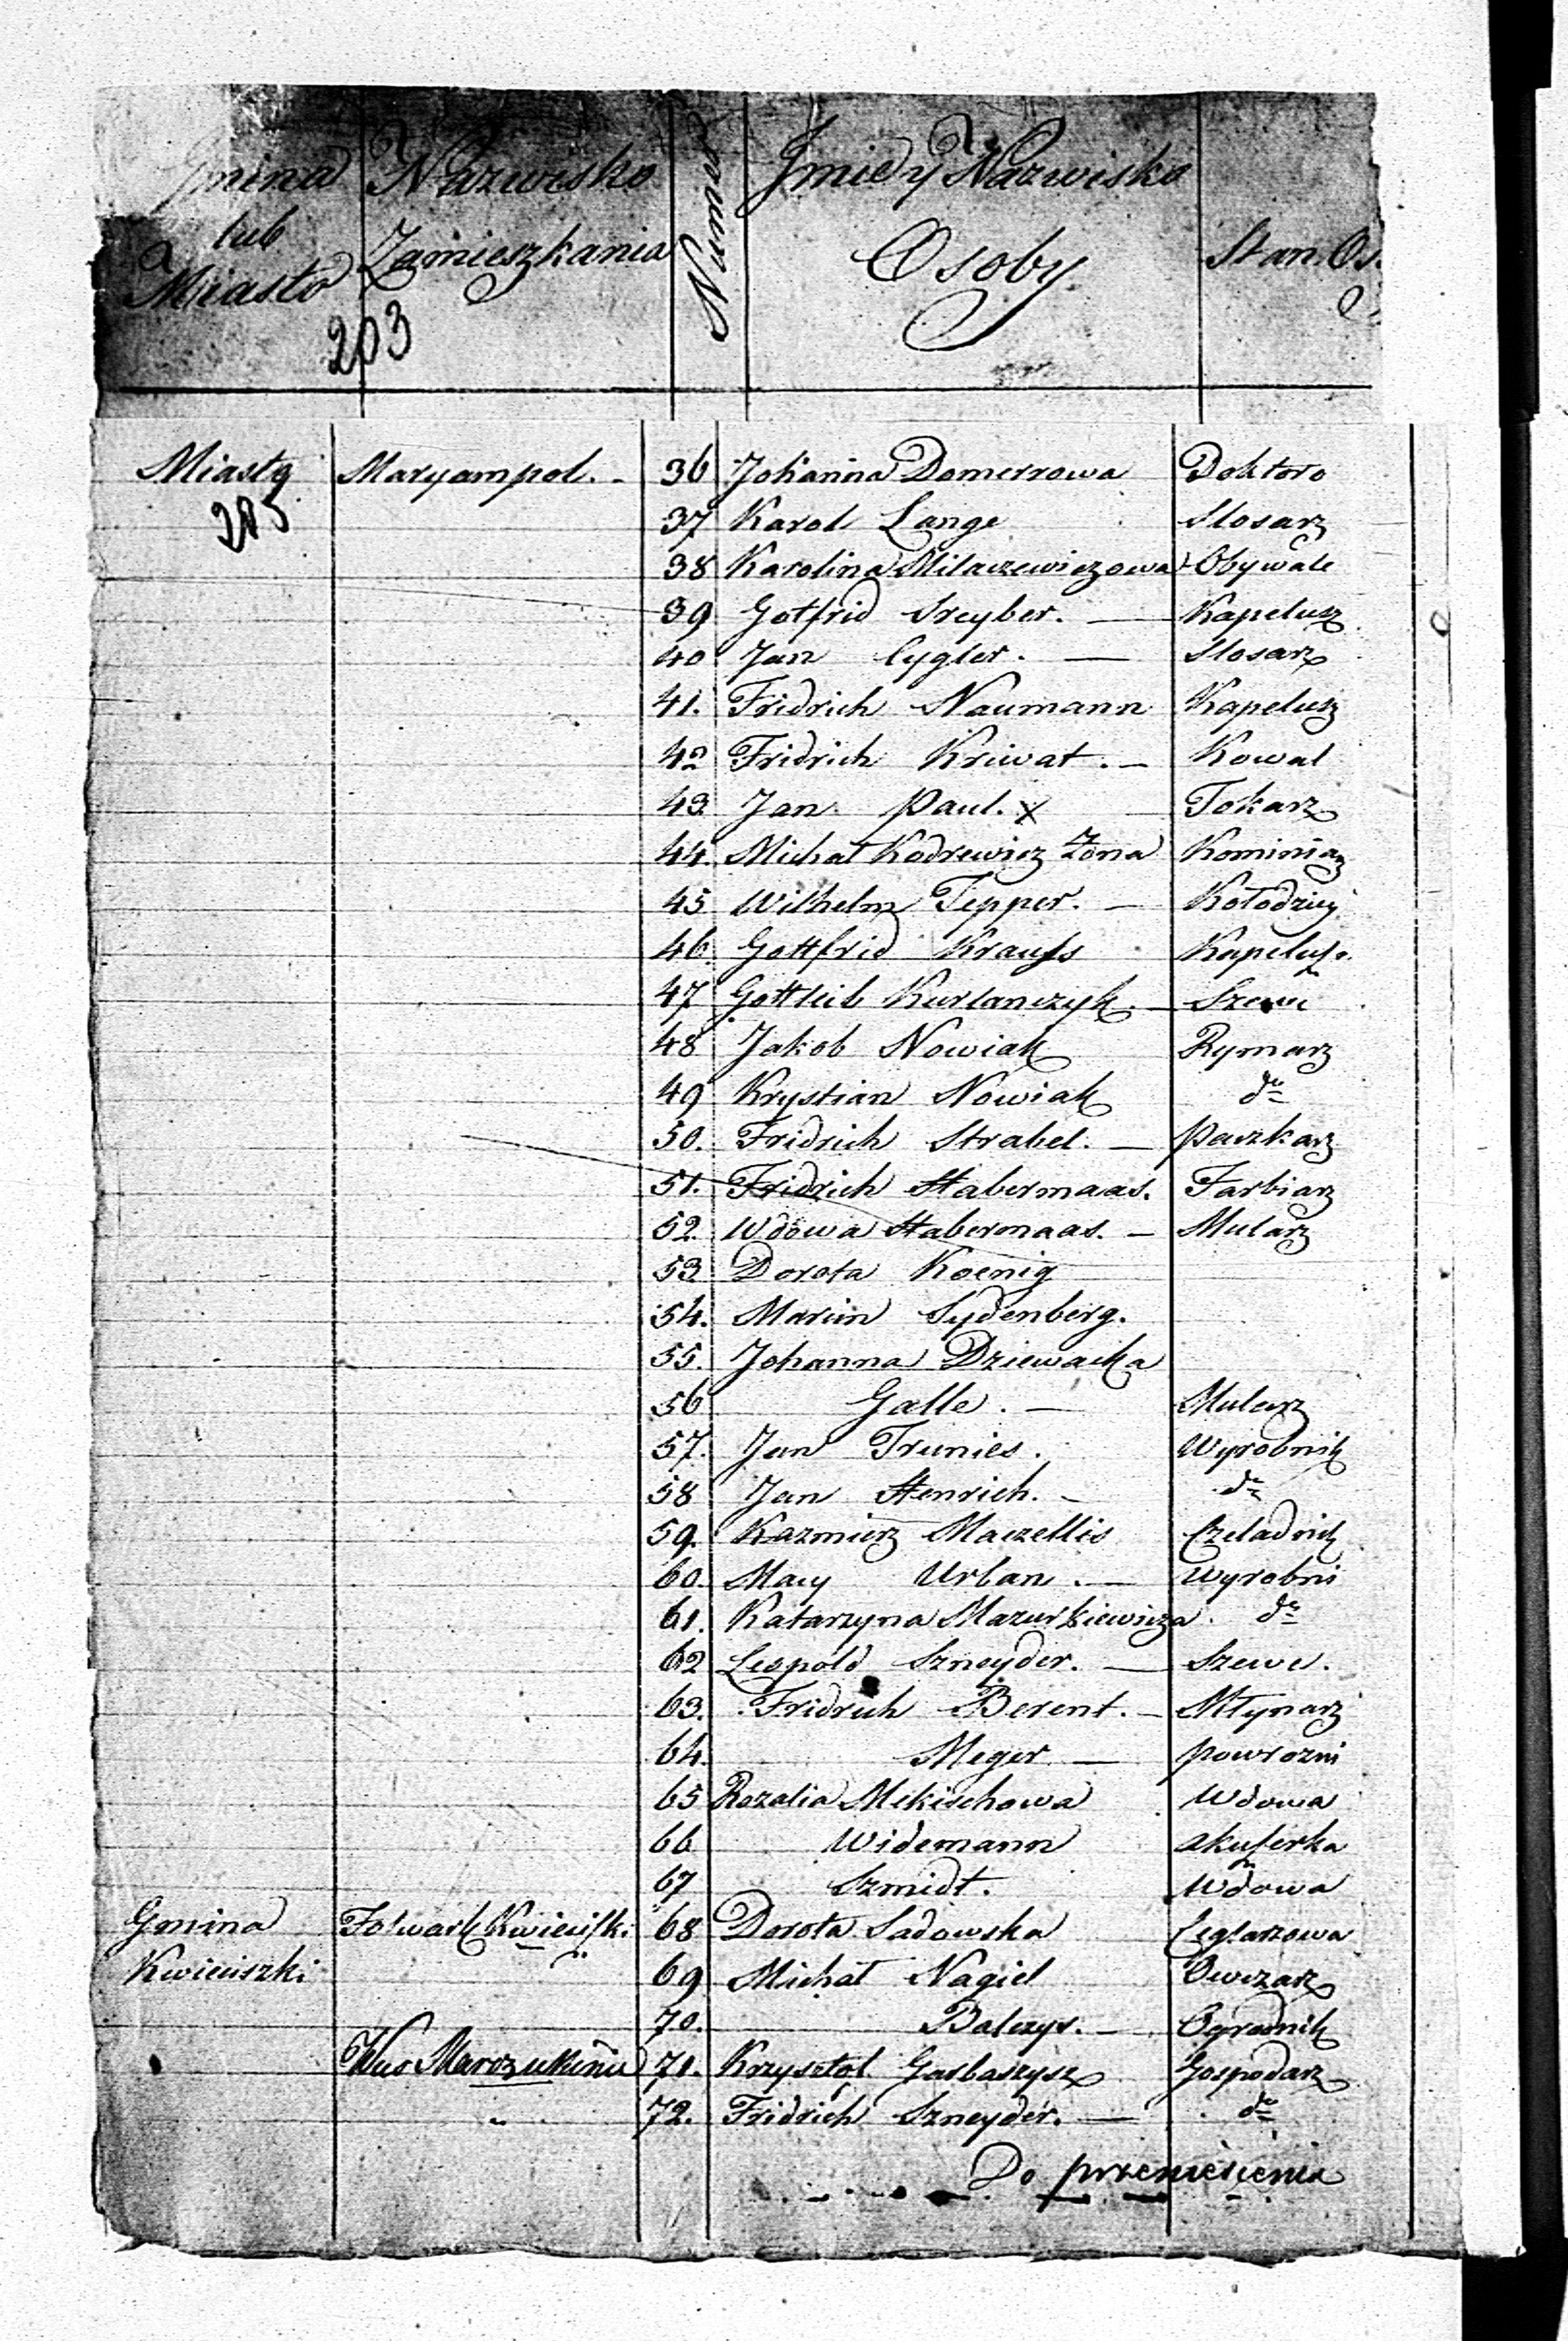 Gmina lub Miasto Nazwisko Zamieszkania Numer Jmie y Nazwisko Osoby Stan Os.
203
Miasto Maryampol. 36 Johanna Domerrowa Doktoro
205
37 Karol Lange Slosarz
38 Karolina Milaczewiczowa Obywate
39 Gotfrid Sreyber. Kapelusz
40 Jan Cygler. Slosarz
41. Fridrich Naumann Kapelusz
42 Fridrich Kriwat. Kowal
43 Jan Paul. x Tokarz
44. Michał Kodrewicz Żona Kominiaz
45 Wilhelm Tepper. Kołodziej
46 Gottfrid Krauss Kapelusz
47 Gottlieb Kurlanczyk. Szewc
48 Jakob Nowiak Rymarz
49 Krystian Nowiak do
50. Fridrich Strabel. Paczkarz
51. Fridrich Habermaas. Farbiarz
52. Wdowa Habermaas. Mularz
53 Dorota Koenig
54. Sydenberg.
55. Johanna Dziewacka
56 Galle. Mularz
57. Jan Trunies. Wyrobnik
58 Jan Henrich. do
59. Kazmierz Maczellis Czeladnik
60. Macy Urban. Wyrobni
61. Katarzyna Mazurkiewicza do
62 Leopold Szneyder. Szewc.
63. Fridrich Berent. Młynarz
64. Meger Powrozni
65 Rozalia Mekischowa Wdowa
66 Widemann Akuszerka
67 Szmidt. Wdowa
Gmina Folwark Kwieciszki 68 Dorota Sadowska Ceglarzowa
Kwieciszki 69 Michał Nagiel Owczarz
70. Balczys. Ogrodnik
71. Krzysztof Garbaszysz Gospodarz
" 72. Fridrich Szneyder. do
Do przeniesienia